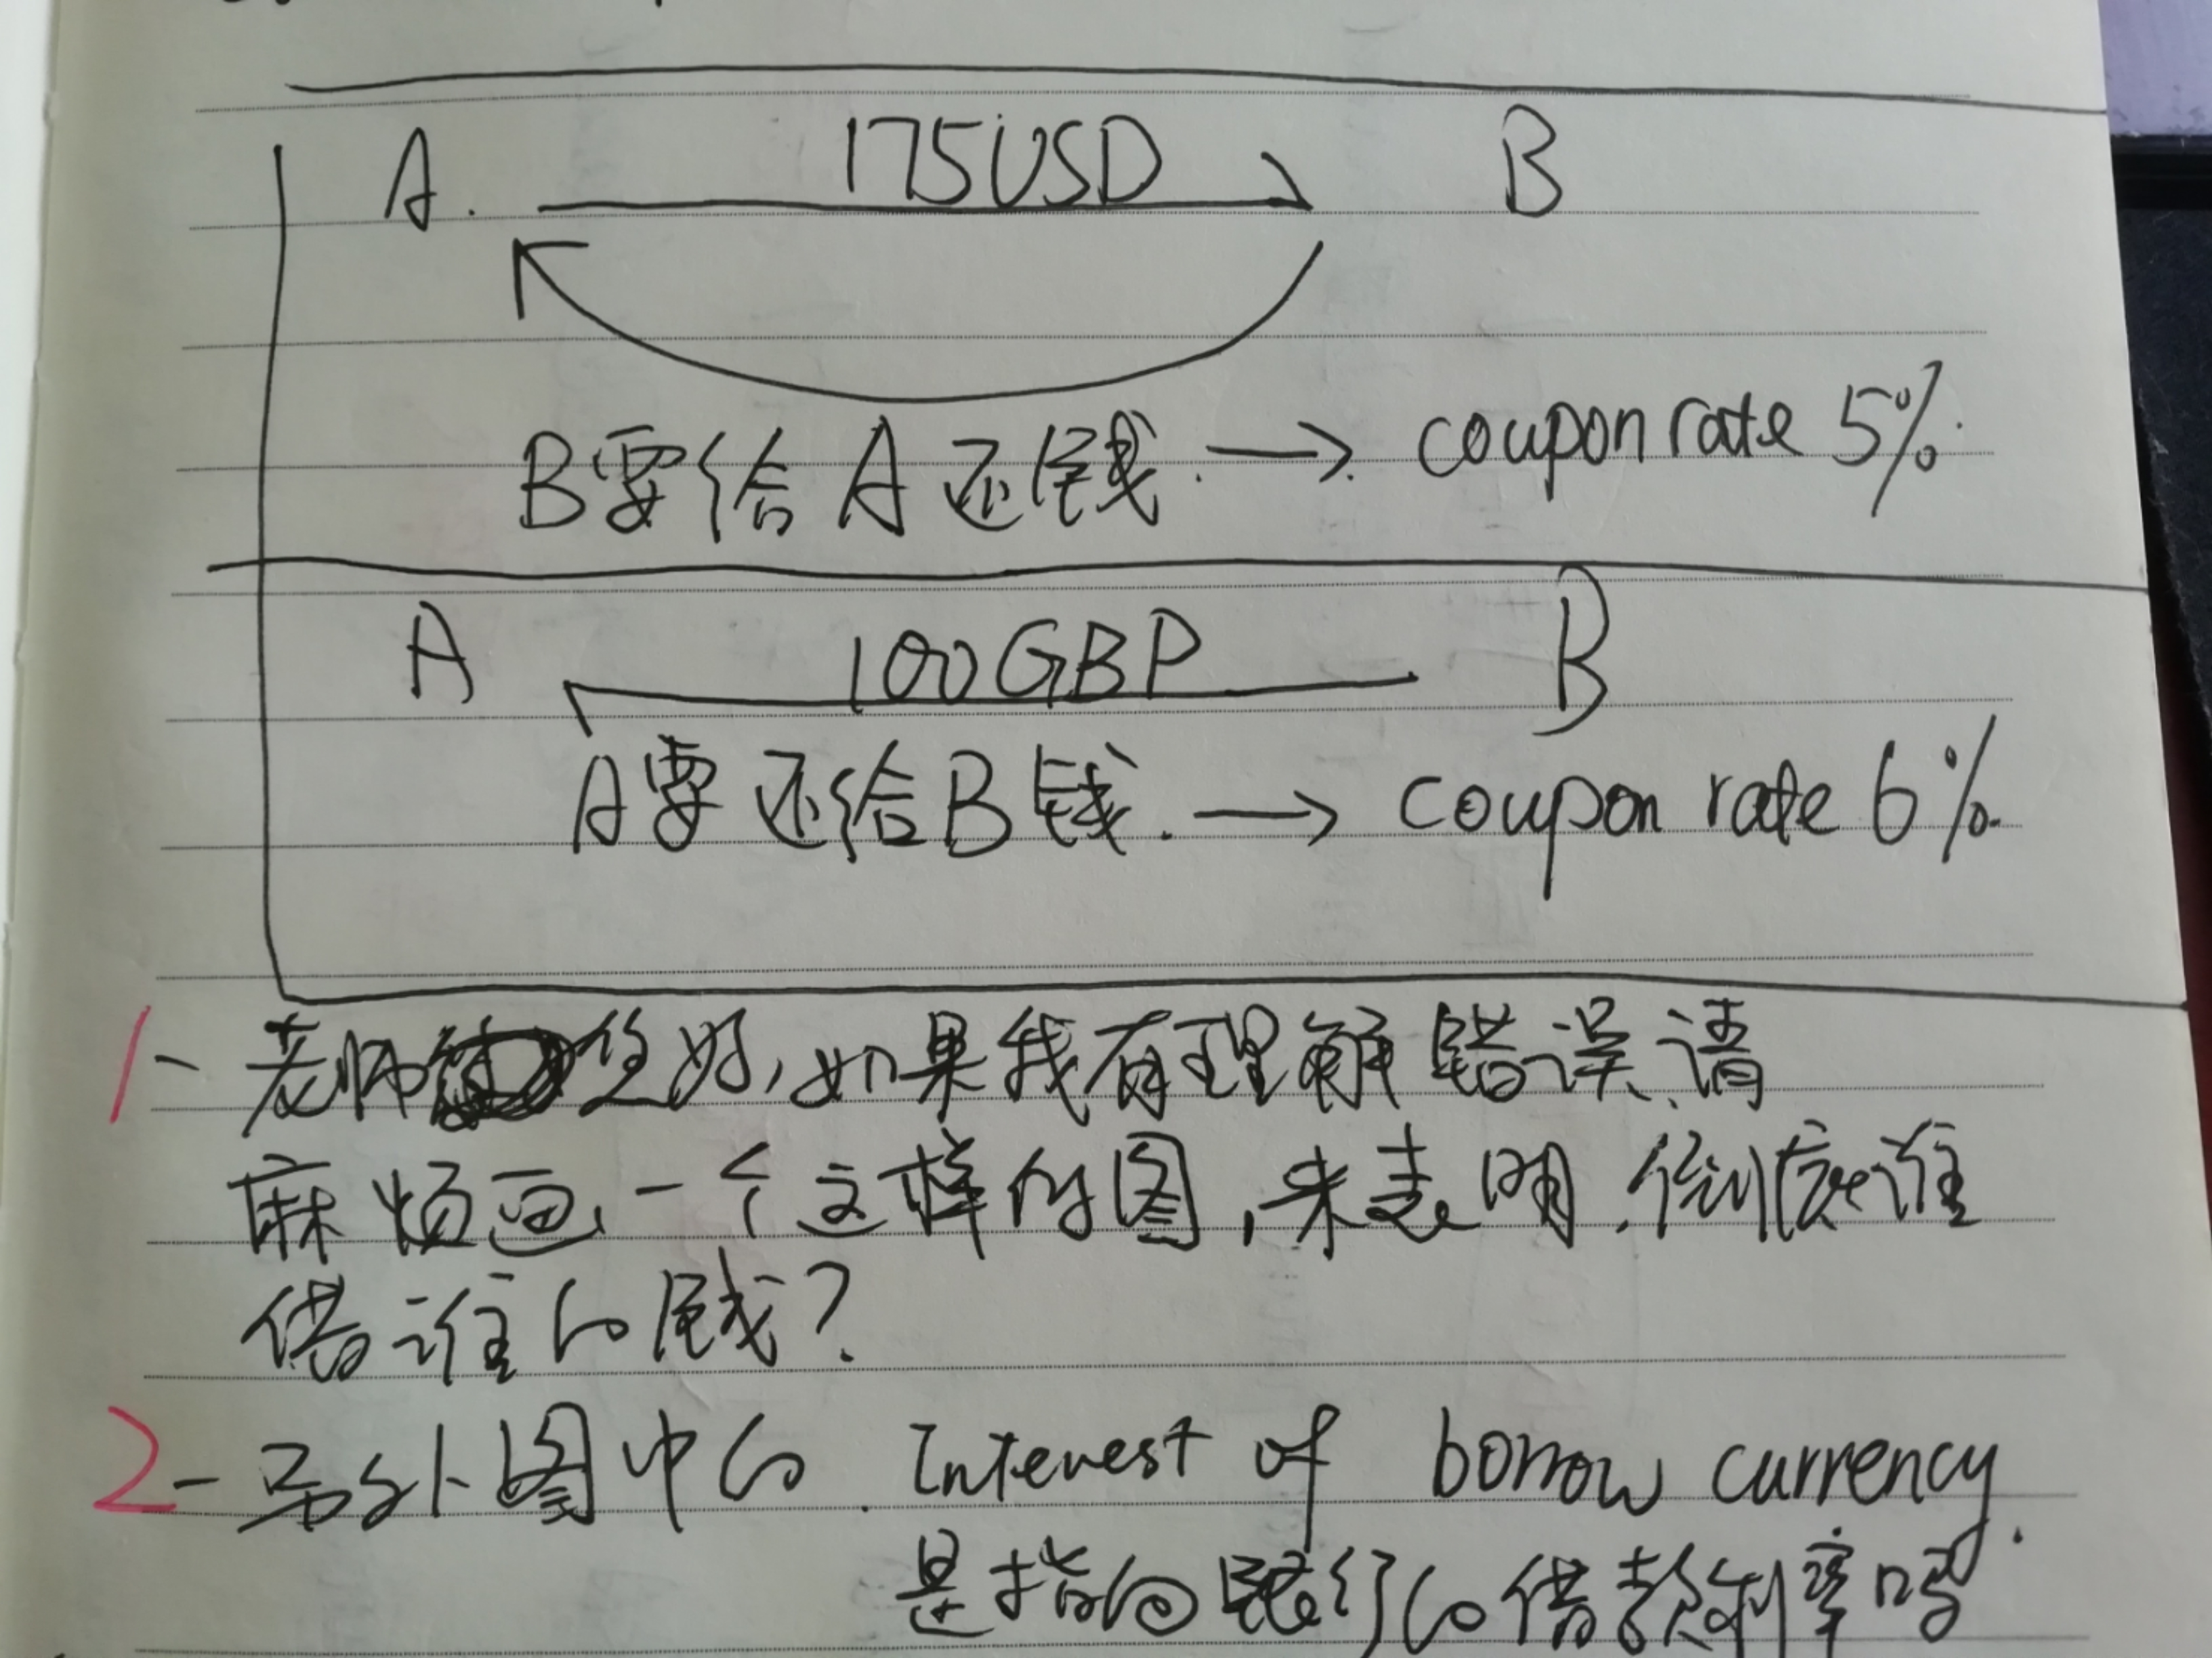 A. 175USD B
B要给A还钱. → coupon rate 5%.
A 100GBP B
A要还给B钱. → coupon rate 6%.
1- 老师您好,如果我有理解错误,请
麻烦画一个这样的图,来表明,倒底谁
借谁的钱?
2- 另外图中的. Interest of borrow currency.
是指向银行的借款利率吗